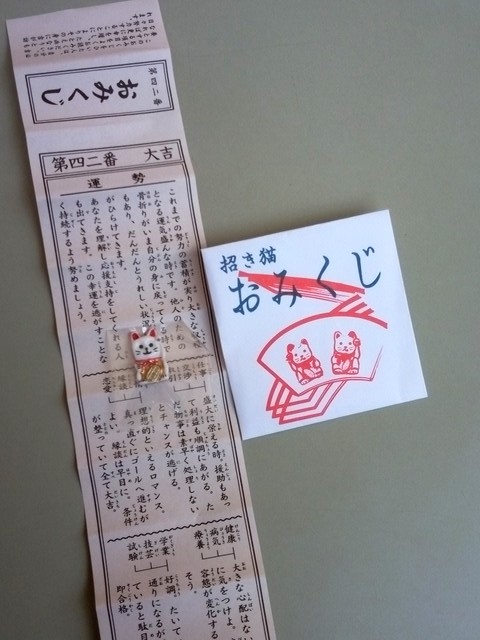 第四二番
おみくじ
第四二番 大吉
運勢
これまでの努力の蓄積が
となる運気盛んな時です。他人のための
骨折りがいま自分の身に戻ってくる時
もあり、だんだんとうれしい状況
がひらけてきます。
あなたを理解し応援支持をしてくれる人
も出てきます。この幸運を逃がすことな
く持続するよう努めましょう。
盛大に栄える時。援助もあっ
て利益も順調にあがる。た
だ物事は素早く処理しない
とチャンスが逃げる。
恋愛
縁談
理想的といえるロマンス。
真っ直ぐにゴールへ進むが
よい。縁談は早目に。条件
が整っていて全て大吉。
健康
病気
療養
大きな心配はない
に気をつけよ。
容態が変化する
そう。
学業
技芸
試験
好調。たいて
通りになるが
ていると駄目
即合格
招き猫
おみくじ